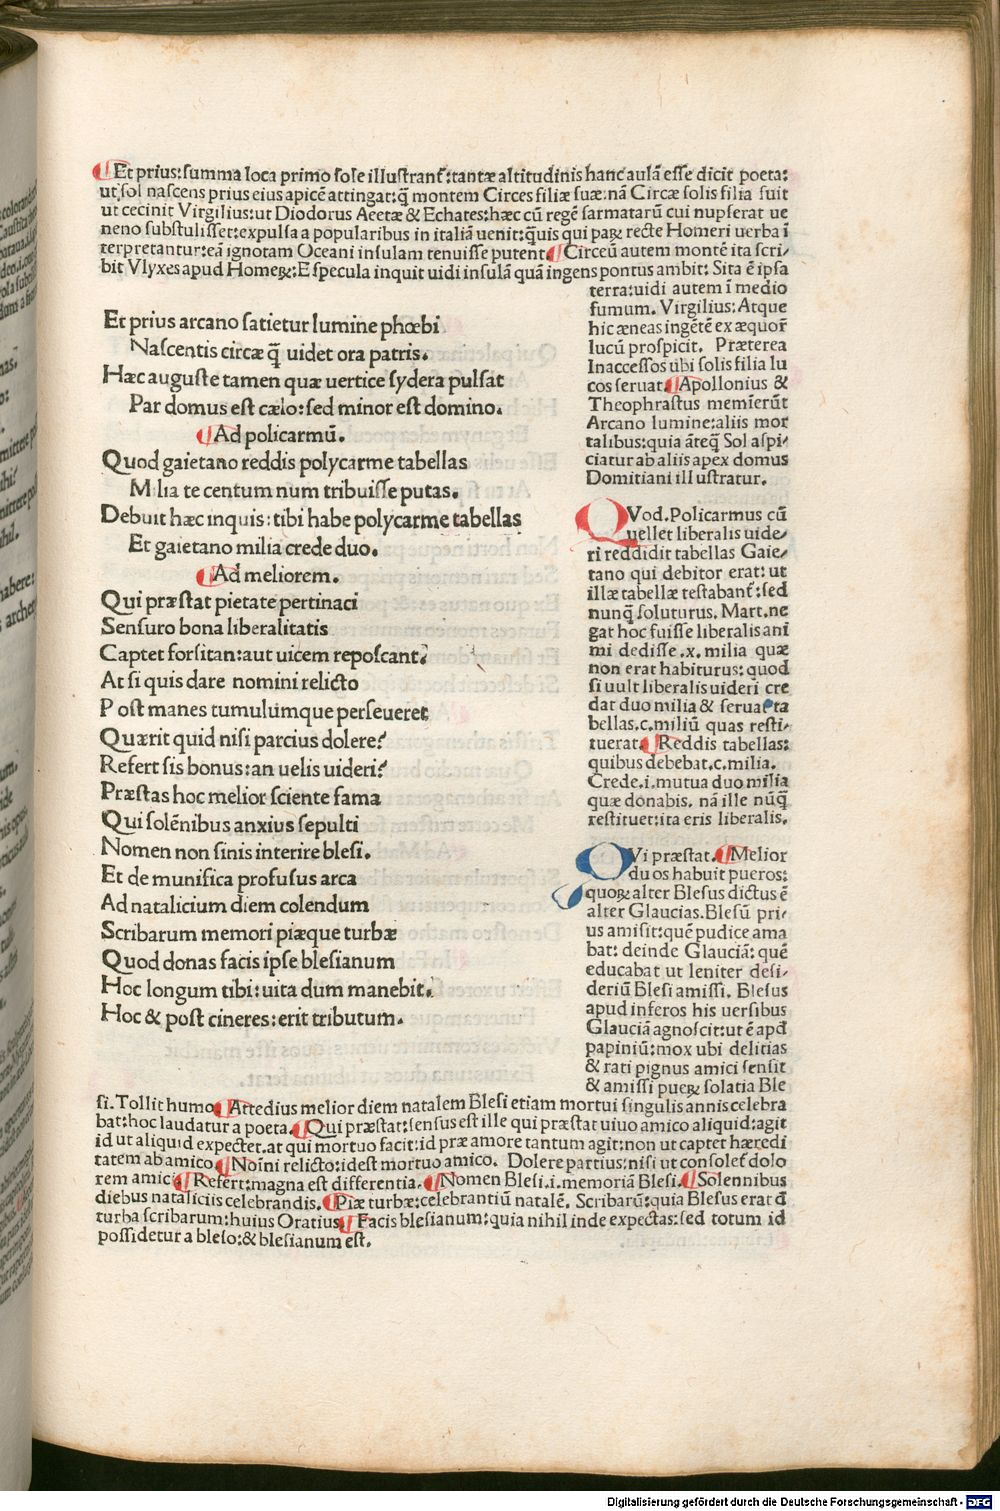 ¶Et prius:summa loca primo sole illustranť:tantæ altitudinis hanc aulã esse dicit poeta:
ut sol nascens prius eius apicẽ attingat:q̃ montem Circes filiæ suæ:nã Circæ solis filia fuit
ut cecinit Virgilius:ut Diodorus Aeetæ & Echates:hæc cũ regẽ sarmatarũ cui nupserat ue
neno substulisset:expulsa a popularibus in italiã uenit:q̃uis qui paꝝ recte Homeri uerba ĩ
terpretantur:eã ignotam Oceani insulam tenuisse putent ¶Circeũ autem montẽ ita scri/
bit Vlyxes apud Homeꝝ:E specula inquit uidi insulã quã ingens pontus ambit: Sita ẽ ipsa
terra:uidi autem ĩ medio
fumum. Virgilius: Atque
hic æneas ingẽtẽ ex æquoř
lucũ prospicit. Præterea
Inaccessos ubi solis filia lu
cos seruat. ¶Apollonius &
Theophrastus memĩerũt
Arcano lumine:aliis mor
talibus:quia ãteq̃ Sol aspi/
ciatur ab aliis apex domus
Domitiani illustratur.
Et prius arcano satietur lumine phœbi
Nascentis circæ q̃ uidet ora patris.
Hæc auguste tamen quæ uertice sydera pulsat
Par domus est cælo:sed minor est domino.
¶Ad policarmũ.
Quod gaietano reddis polycarme tabellas
Milia te centum num tribuisse putas.
Debuit hæc inquis:tibi habe polycarme tabellas
Et gaietano milia crede duo.
¶Ad meliorem.
Qui præstat pietate pertinaci
Sensuro bona liberalitatis
Captet forsitan:aut uicem reposcant.
At si quis dare nomini relicto
Post manes tumulumque perseueret
Quærit quid nisi parcius dolere?
Refert sis bonus:an uelis uideri?
Præstas hoc melior sciente fama
Qui solẽnibus anxius sepulti
Nomen non sinis interire blesi.
Et de munifica profusus arca
Ad natalicium diem colendum
Scribarum memori piæque turbæ
Quod donas facis ipse blesianum
Hoc longum tibi:uita dum manebit.
Hoc & post cineres:erit tributum.
QVod.Policarmus cũ
uellet liberalis uide/
ri reddidit tabellas Gaie/
tano qui debitor erat: ut
illæ tabellæ testabanť:sed
nunq̃ soluturus. Mart.ne
gat hoc fuisse liberalis ani
mi dedisse .x. milia quæ
non erat habiturus: quod
si uult liberalis uideri cre
dat duo milia & seruat ta
bellas.c.miliũ quas resti/
tuerat. ¶Reddis tabellas:
quibus debebat.c.milia.
Crede.i.mutua duo milia
quæ donabis. nã ille nũq̃
restituet:ita eris liberalis.
QVi præstat. ¶Melior
duos habuit pueros:
quoꝝ alter Blesus dictus ẽ
alter Glaucias.Blesũ pri/
us amisit:quẽ pudice ama
bat: deinde Glauciã: quẽ
educabat ut leniter desi/
deriũ Blesi amissi. Blesus
apud inferos his uersibus
Glauciã agnoscit:ut ẽ apđ
papiniũ:mox ubi delitias
& rati pignus amici sensit
& amissi pueꝝ solatia Ble
si. Tollit humo. ¶Attedius melior diem natalem Blesi etiam mortui singulis annis celebra
bat:hoc laudatur a poeta. ¶Qui præstat:sensus est ille qui præstat uiuo amico aliquid:agit
id ut aliquid expectet.at qui mortuo facit:id præ amore tantum agit:non ut captet hæredi
tatem ab amico ¶Noĩni relicto:idest mortuo amico. Dolere partius:nisi ut consoleť dolo
rem amici ¶Refert:magna est differentia. ¶Nomen Blesi.i.memoriã Blesi. ¶Solennibus
diebus nataliciis celebrandis. ¶Piæ turbæ:celebrantiũ natalẽ. Scribarũ:quia Blesus erat đ
turba scribarum:huius Oratius ¶Facis blesianum:quia nihil inde expectas:sed totum id
possidetur a bleso:& blesianum est.
Digitalisierung gefördert durch die Deutsche Forschungsgemeinschaft - DFG